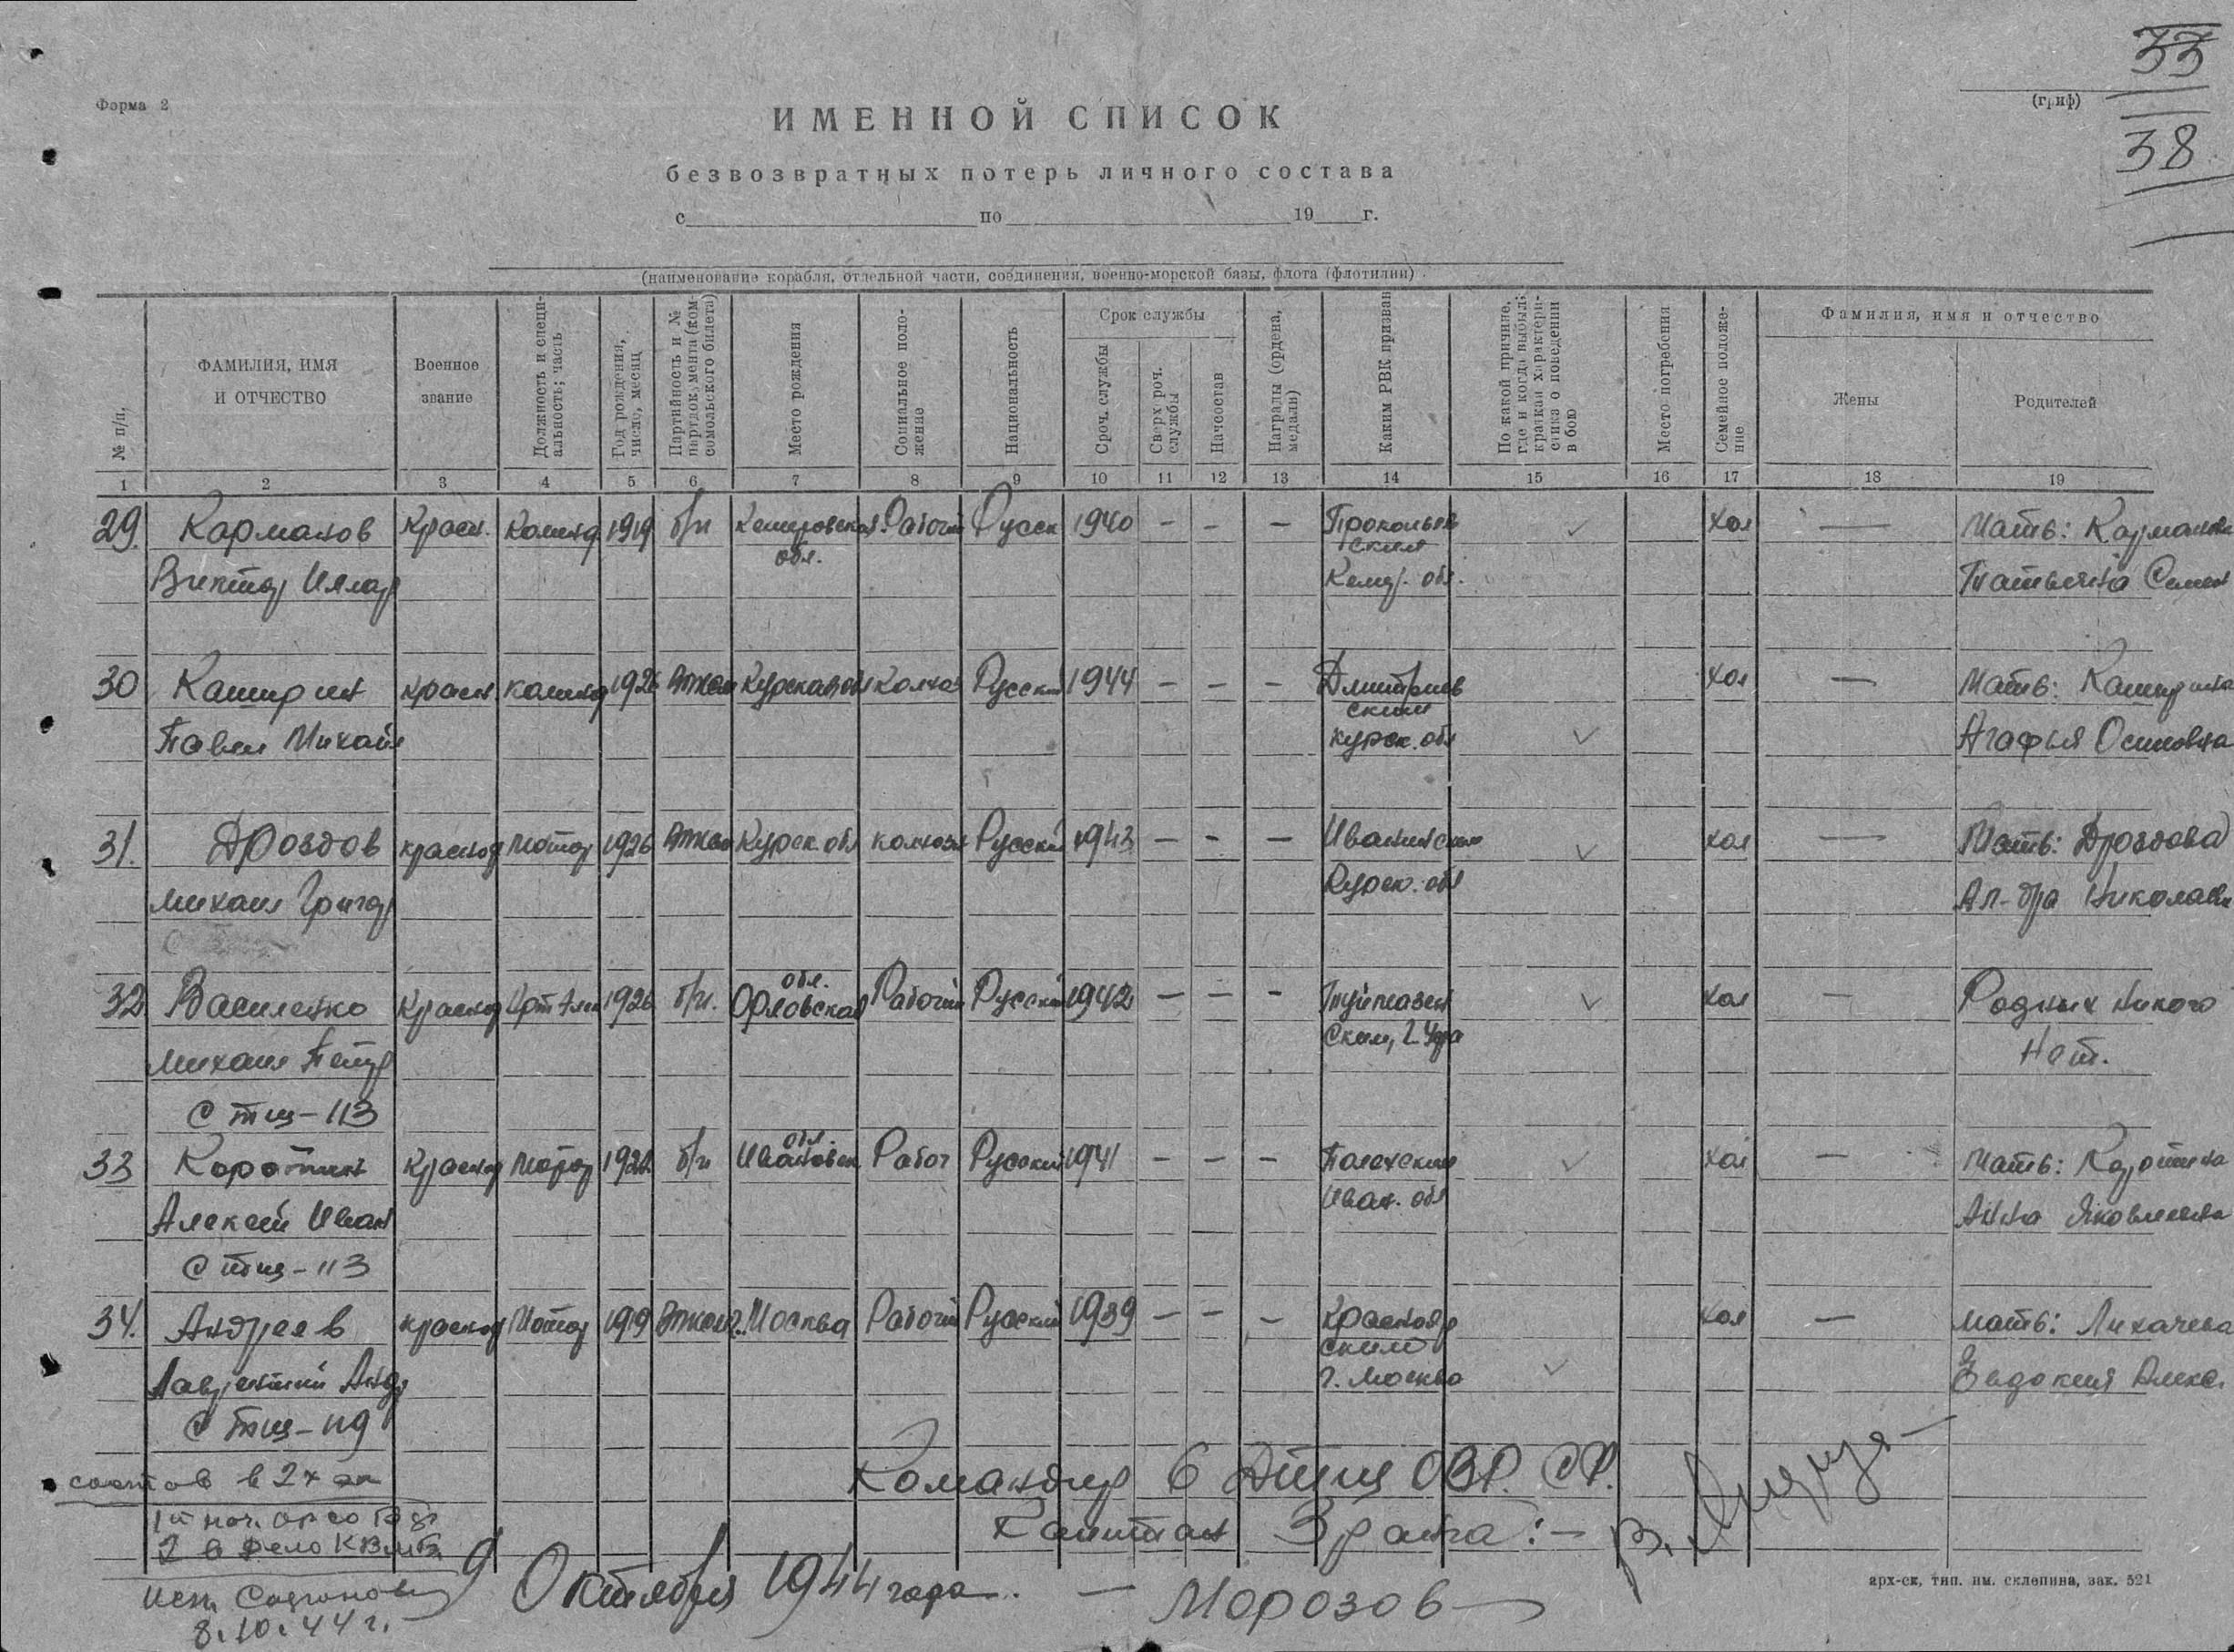 33
38
Форма 2
(гриф)
ИМЕННОЙ СПИСОК
безвозвратных потерь личного состава
с по 19 г.
(наименование корабля, отдельной части, соединения, военно-морской базы, флота (флотилии)
№ п/п.
ФАМИЛИЯ, ИМЯ И ОТЧЕСТВО
Военное звание
Должность и специальность; часть
Год рождения, число, месяц
Партийность и № партдокумента (комсомольского билета)
Место рождения
Социальное положение
Национальность
Срок службы
Сроч. службы
Сверх роч. службы
Начсостав
Награды (ордена, медали)
Каким РВК призван
По какой причине, где и когда выбыл; краткая характеристика о поведении в бою
Место погребения
Семейное положение
Фамилия, имя и отчество
Жены
Родителей
1 2 3 4 5 6 7 8 9 10 11 12 13 14 15 16 17 18 19
29. Карманов Красн. Коменд 1919 б/п Кемеровская Рабочий Русск 1940 - - - Прокопьев хол — Мать: Карманова
обл. ским
Виктор Кемер. обл. Татьяна Семен
30 Каширин красн. коменд 1926 Влксм Курская обл Колхоз Русский 1944 - - - Дмитриев хол — Мать: Каширина
ским
Павел Михайл Курск. обл Агафья Осиповна
31. Дроздов краснофл Мотор 1926 Влксм Курск обл колхозн Русский 1943 - - - Иванинским хол — Мать: Дроздова
Михаил Григор Курск. обл Ал-дра Николаевн
обл.
32 Василенко Краснофл 1926 б/п. Орловская Рабочий Русский 1942 - - - Туймазин хол — Родных никого
Михаил Петр ским, г. Уфа Нет.
с тщ-113
обл.
33 Коротин Краснофл Мотор 1922 б/п Ивановск Рабоч Русский 1941 - - - Палехским хол — Мать: Коротина
Алексей Иван Иван. обл Анна Яковлевна
с тщ-113
34. Андреев краснофл Мотор 1919 Влксм г. Москва Рабочий Русский 1939 - - - Красногв хол — Мать: Лихачева
ским
Лаврентий Андр г. Москва Евдокия Алекс.
с тщ-119
Командир 6 Дтщ ОВР. СФ.
состав в 2х эк
Капитан 3 ранга: —
2 в дело КВМБ
9 Октября 1944 года. — Морозов —
исп. Сафонов
8.10.44 г.
арх-ск, тип. им. склепина, зак. 521